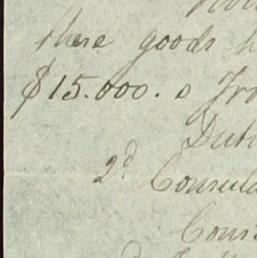 these goods h
$15.000. o Fro
Duti
2d Consula
Cons